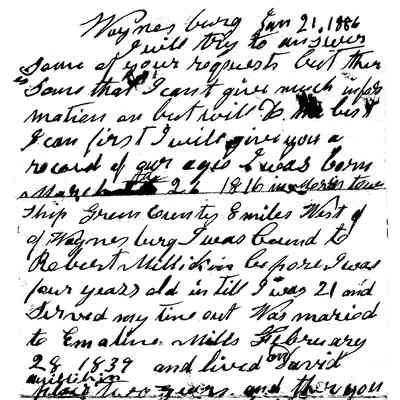 Waynesburg Jan 21, 1886
I will try to answer
Some of your requests but ther
is Some that I cant give much infor
mation on but will do the best
I can first I will give you a
record of our ages I was born
March the 26 1816 in Morris town
ship Green County 8 miles West of
of Waynesburg I was bound to
Robert Millikin before I was
four years old in till I was 21 and
Served my time out Was maried
to Emaline Mills February
28 1839 and lived on David
place two years and then you